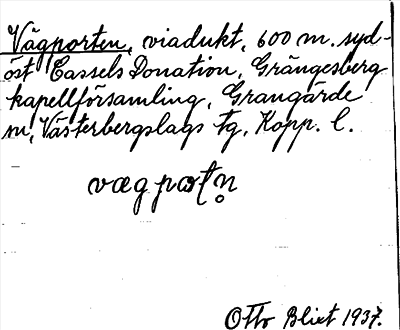 Vägporten, viadukt, 600 m. syd-
öst Cassels Donation, Grängesberg
kapellförsamling, Grangärde
sn, Västerbergslags tg, Kopp. l.
vægpoṭn̥
Otto Blixt 1937.